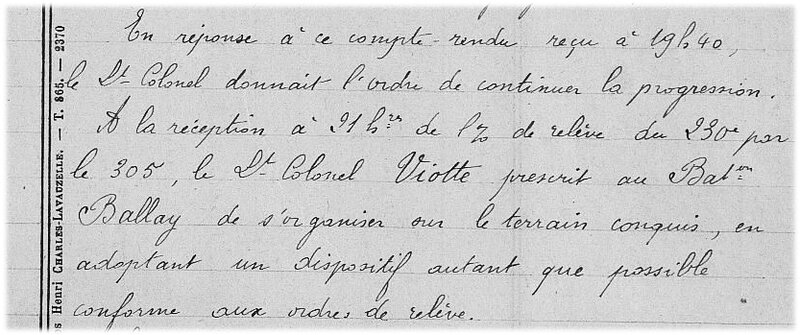 En réponse à ce compte-rendu reçu à 19h40,
le Lt Colonel donnait l'ordre de continuer la progression.
A la réception à 21 hres de l'o de relève du 230e par
le 305, le Lt Colonel Viotte prescrit au Bat.on
Ballay de s'organiser sur le terrain conquis, en
adoptant un dispositif autant que possible
conforme aux ordres de relève.
s Henri CHARLES-LAVAUZELLE. — T. 865. — 2370